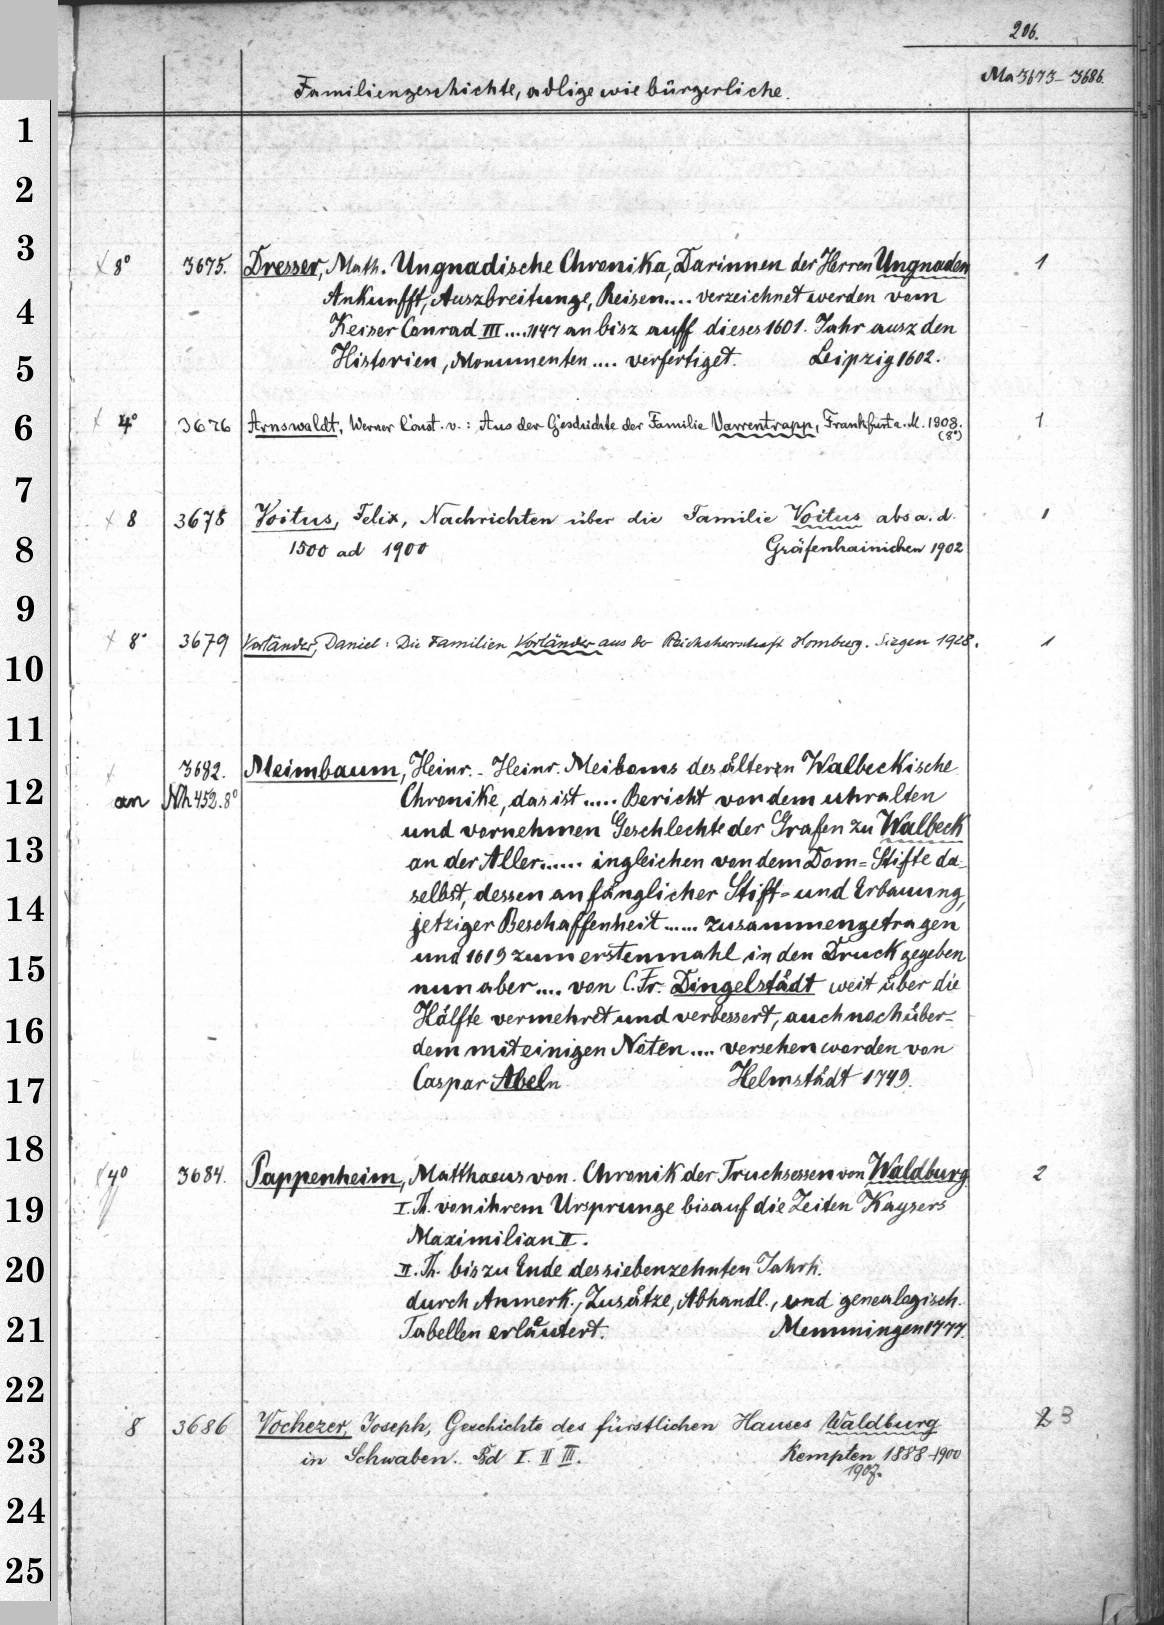 206.
Familiengeschichte, adlige wie bürgerliche. Ma 3673-3686.
1
2
3
x 8° 3675. Dresser, Math. Ungnadische Chronika, Darinnen der Herren Ungnaden 1
4
Ankunfft, Auszbreitunge, Reisen.... verzeichnet werden vom
Keiser Conrad III....1147 an bisz auff dieses 1601. Jahr ausz den
5
Historien, Monumenten.... verfertiget. Leipzig 1602.
6
x 4° 3676 Arnswaldt, Werner Const. v.: Aus der Geschichte der Familie Varrentrapp, Frankfurt a. M. 1908. 1
(8°)
7
x 8 3678 Voitus, Felix, Nachrichten über die Familie Voitus ab a. d. 1
8
1500 ad 1900 Gräfenhainichen 1902
9
x 8° 3679 Vorländer, Daniel: Die Familien Vorländer aus der Reichsherrschaft Homburg. Siegen 1928. 1
10
11
x 3682. Meimbaum, Heinr. - Heinr. Meiboms des ålteren Walbeckische
12
an Nh 452. 8° Chronike, das ist ..... Bericht von dem uhralten
und vornehmen Geschlechte der Grafen zu Walbeck
13
an der Aller...... ingleichen von dem Dom=Stifte da-
selbst, dessen anfånglicher Stift= und Erbauung,
14
jetziger Beschaffenheit ...... zusammengetragen
und 1619 zum erstenmahl in den Druck gegeben
15
nun aber.... von C. Fr. Dingelstådt weit über die
Hålfte vermehret und verbessert, auch noch über-
16
dem mit einigen Noten.... versehen worden von
17
Caspar Abeln Helmstådt 1749.
18
x 4° 3684. Pappenheim, Matthaeus von. Chronik der Truchsessen von Waldburg 2
19
I. Th. von ihrem Ursprunge bis auf die Zeiten Kaysers
Maximilian II.
20
II. Th. bis zu Ende des siebenzehnten Jahrh.
durch Anmerk., Zusåtze, Abhandl., und genealogisch.
21
Tabellen erlåutert. Memmingen 1777.
22
8 3686 Vochezer, Joseph, Geschichte des fürstlichen Hauses Waldburg 2 3
23
in Schwaben. Bd I. II III. Kempten 1888-1900
1907.
24
25